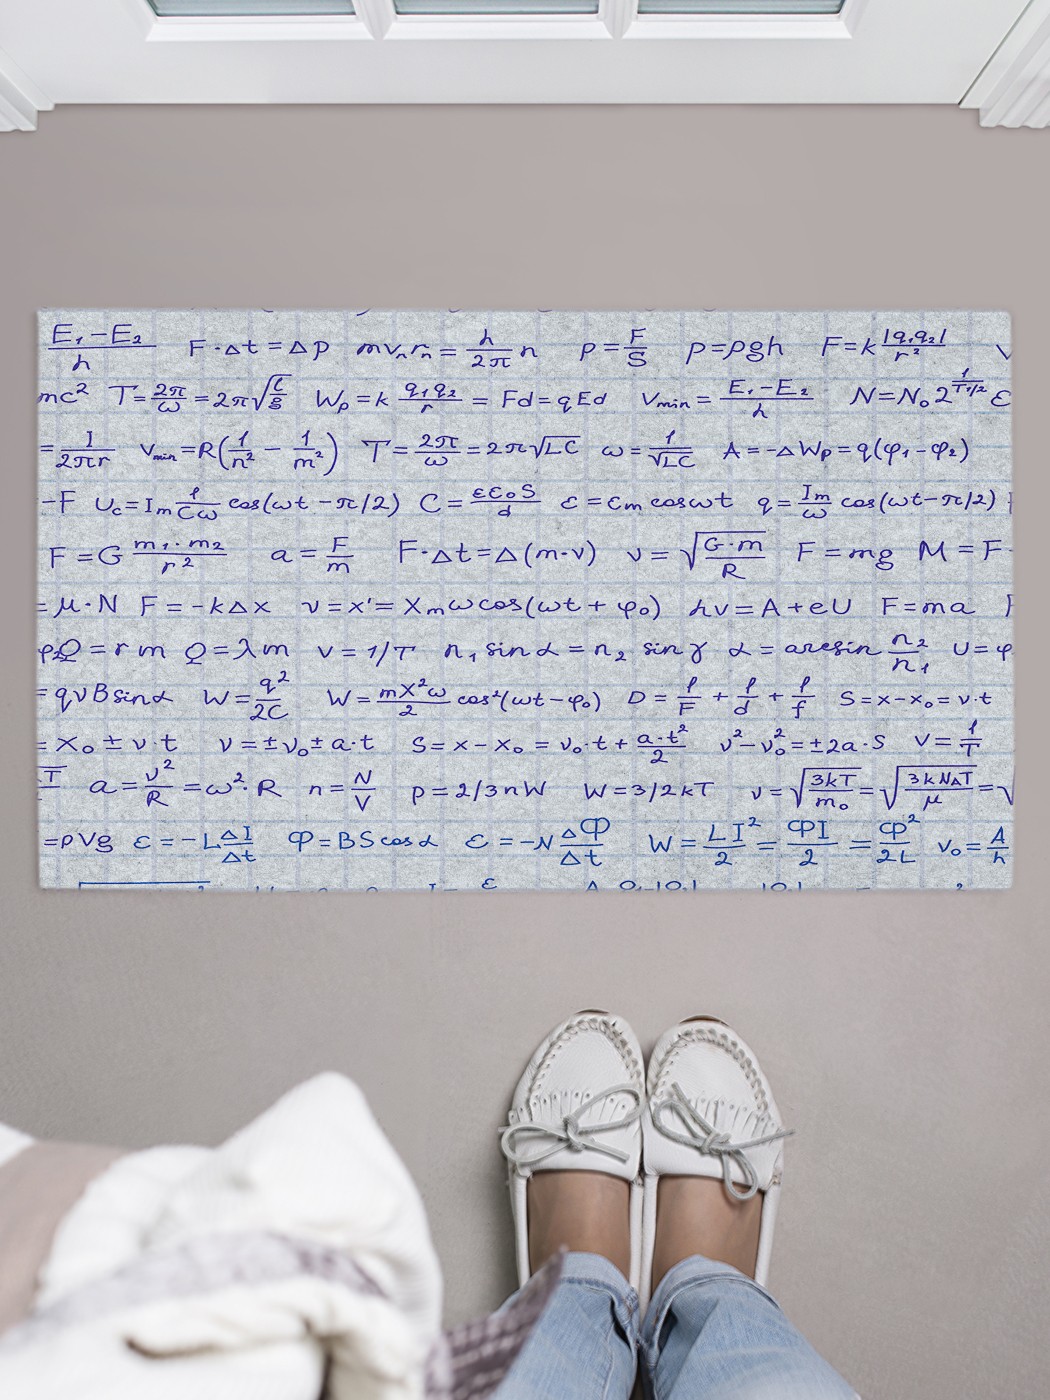 (E₁-E₂)/h F·Δt=Δp mvₙrₙ=h/2π n p=F/S p=ρgh F=k|q₁q₂|/r² v
mc² T=2π/ω=2π√(l/g) Wₚ=k q₁q₂/r = Fd=qEd Vmin=(E₁-E₂)/h N=N₀2^(1/T1/2) ε
=I/2πr Vmin=R(1/n²-1/m²) T=2π/ω=2π√LC ω=1/√LC A=-ΔWₚ=q(φ₁-φ₂)
-F Uc=Im 1/Cω cos(ωt-π/2) C=εε₀S/d ε=εm cosωt q=Im/ω cos(ωt-π/2)
F=G m₁·m₂/r² a=F/m F·Δt=Δ(m·v) v=√(G·m/R) F=mg M=F·
=μ·N F=-kΔx v=x'=Xmωcos(ωt+φ₀) hν=A+eU F=ma
Q=rm Q=λm ν=1/T n₁ sinα=n₂ sinγ α=arcsin n₂/n₁ U=φ
=qvBsinα W=q²/2C W=mX²ω/2 cos²(ωt-φ₀) D=1/F+1/d+1/f S=x-x₀=v·t
=x₀±v·t v=±v₀±a·t S=x-x₀=v₀·t+a·t²/2 v²-v₀²=±2a·S ν=1/T
T a=v²/R=ω²·R n=N/V p=2/3nW W=3/2kT v=√(3kT/m₀)=√(3kNAT/μ)=√
=ρVg ε=-LΔI/Δt Φ=BScosα ε=-NΔΦ/Δt W=LI²/2=ΦI/2=Φ²/2L ν₀=A/h